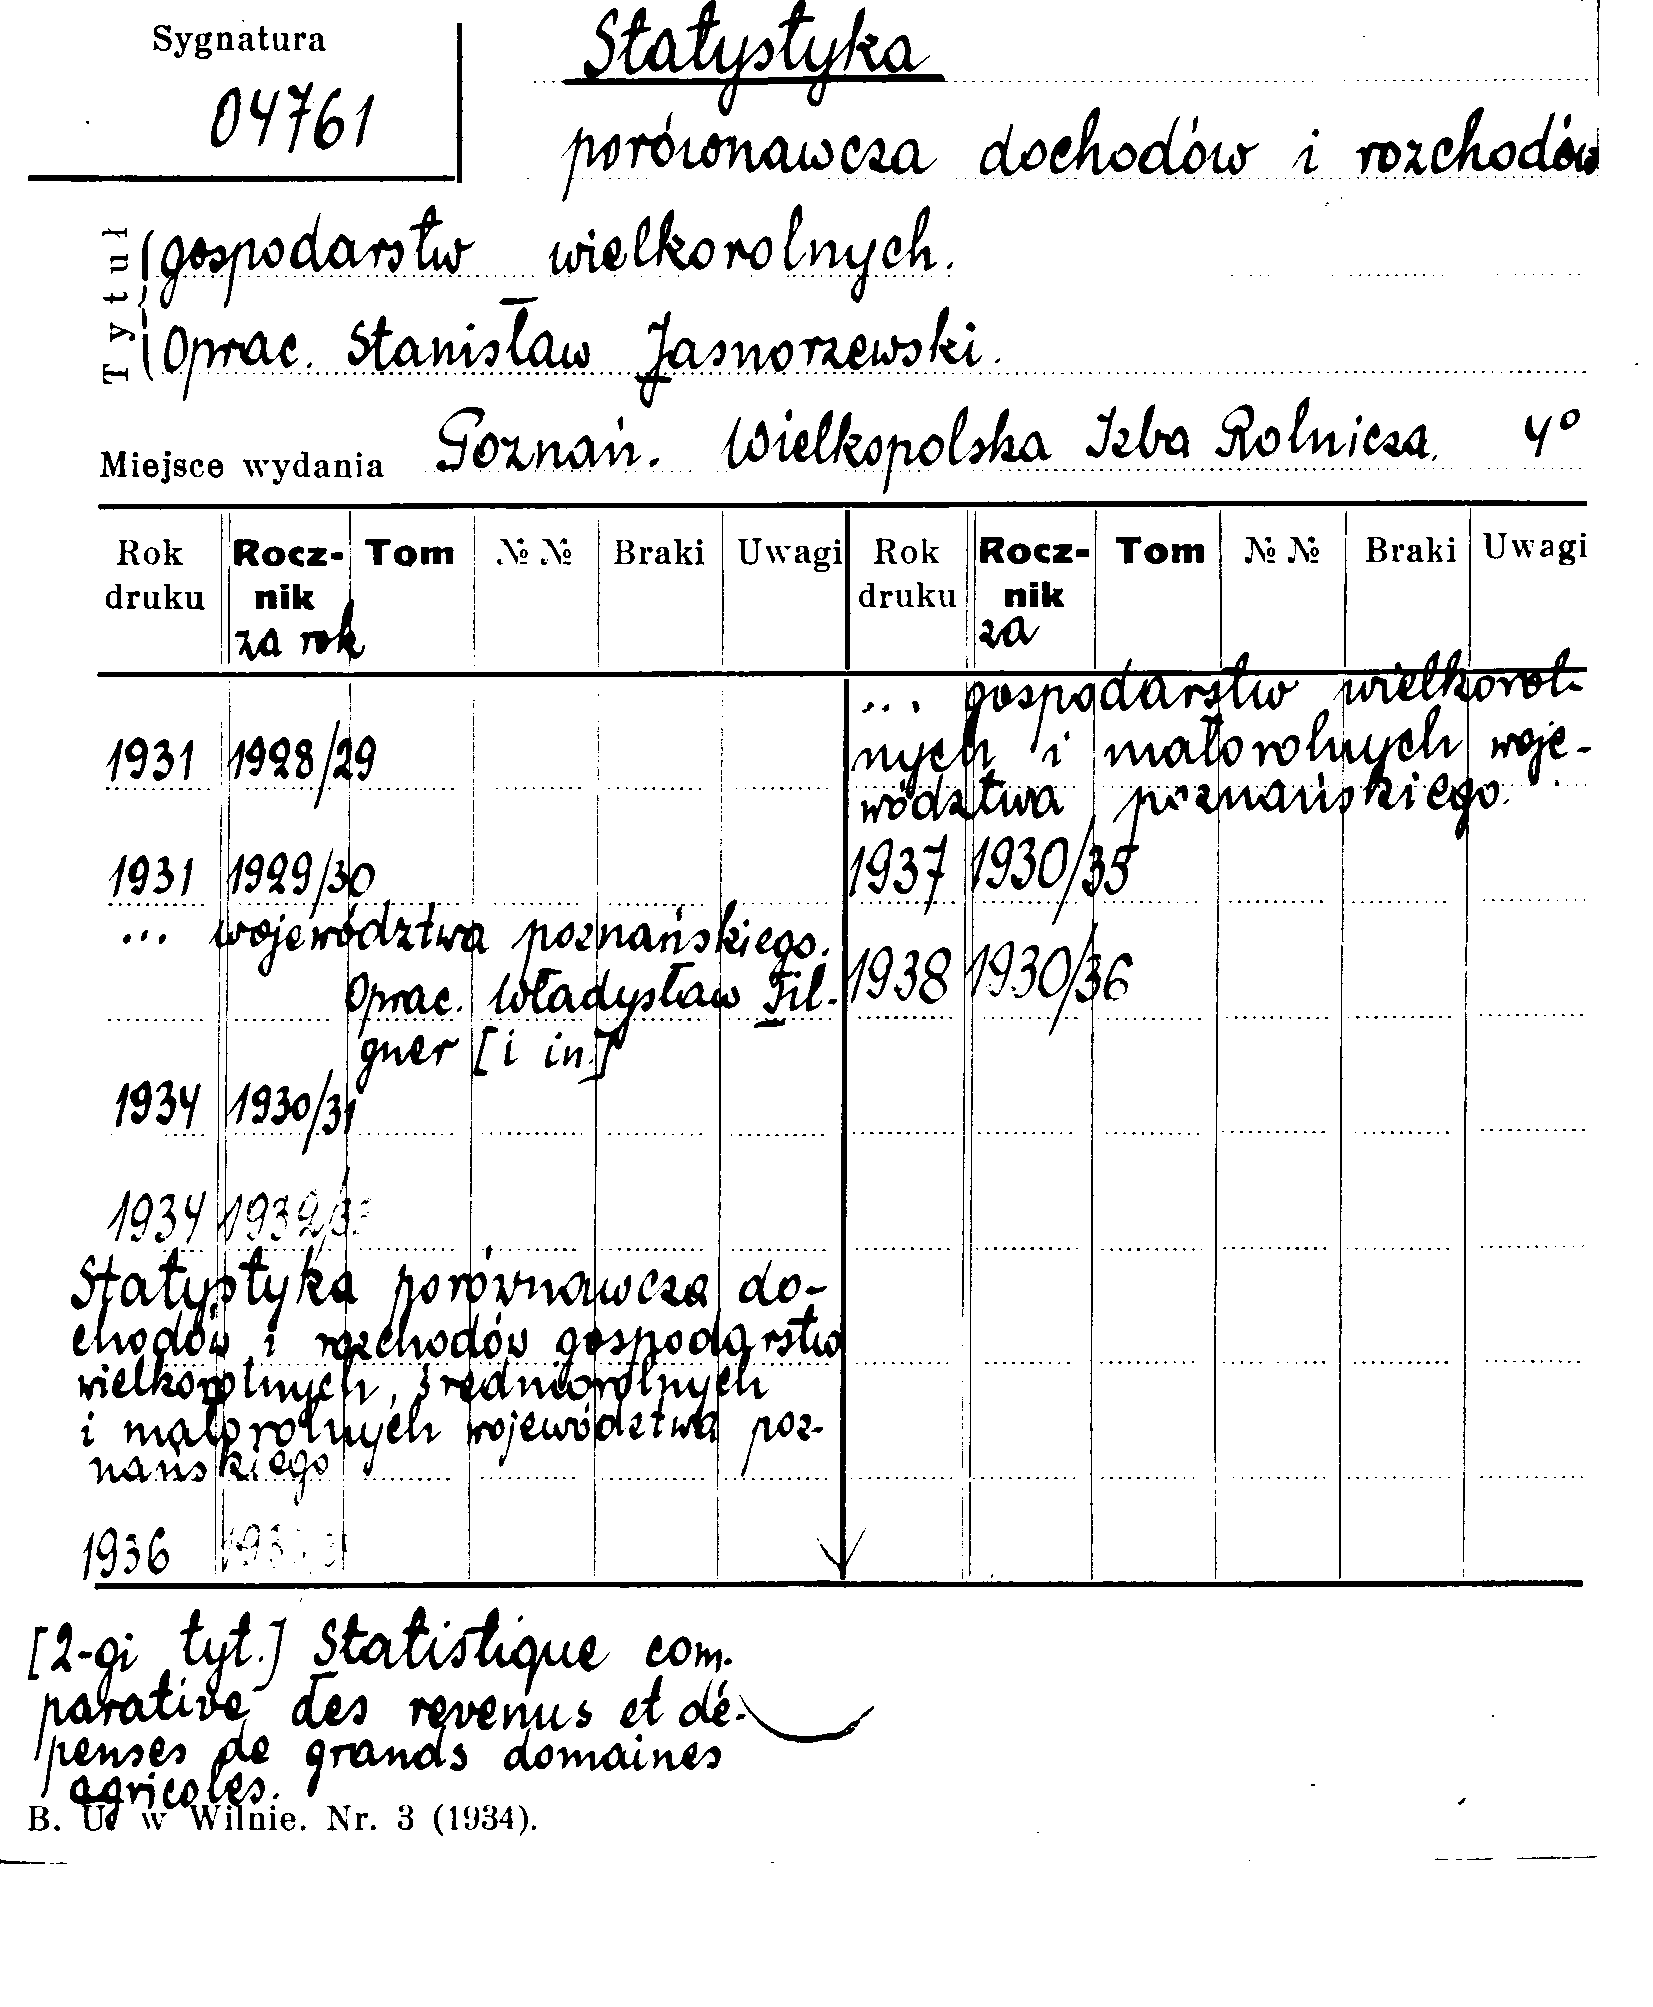 Sygnatura
04761
Statystyka
porównawcza dochodów i rozchodów
Tytuł
gospodarstw wielkorolnych.
Oprac. Stanisław Jasnorzewski.
Miejsce wydania Poznań. Wielkopolska Izba Rolnicza. 4°
Rok druku Rocznik za rok Tom №№ Braki Uwagi
1931 1928/29
1931 1929/30
... województwa poznańskiego.
Oprac. Władysław Fil-
gner [i in.]
1934 1930/31
1934 1932/33
Statystyka porównawcza do-
chodów i rozchodów gospodarstw
wielkorolnych, średniorolnych
i małorolnych województwa poz-
nańskiego
1936
Rok druku Rocznik za Tom №№ Braki Uwagi
... gospodarstw wielkorol-
nych i małorolnych woje-
wództwa poznańskiego.
1937 1930/35
1938 1930/36
[2-gi tyt.] Statistique com-
parative des revenus et dé-
penses de grands domaines
agricoles.
B. U. w Wilnie. Nr. 3 (1934).